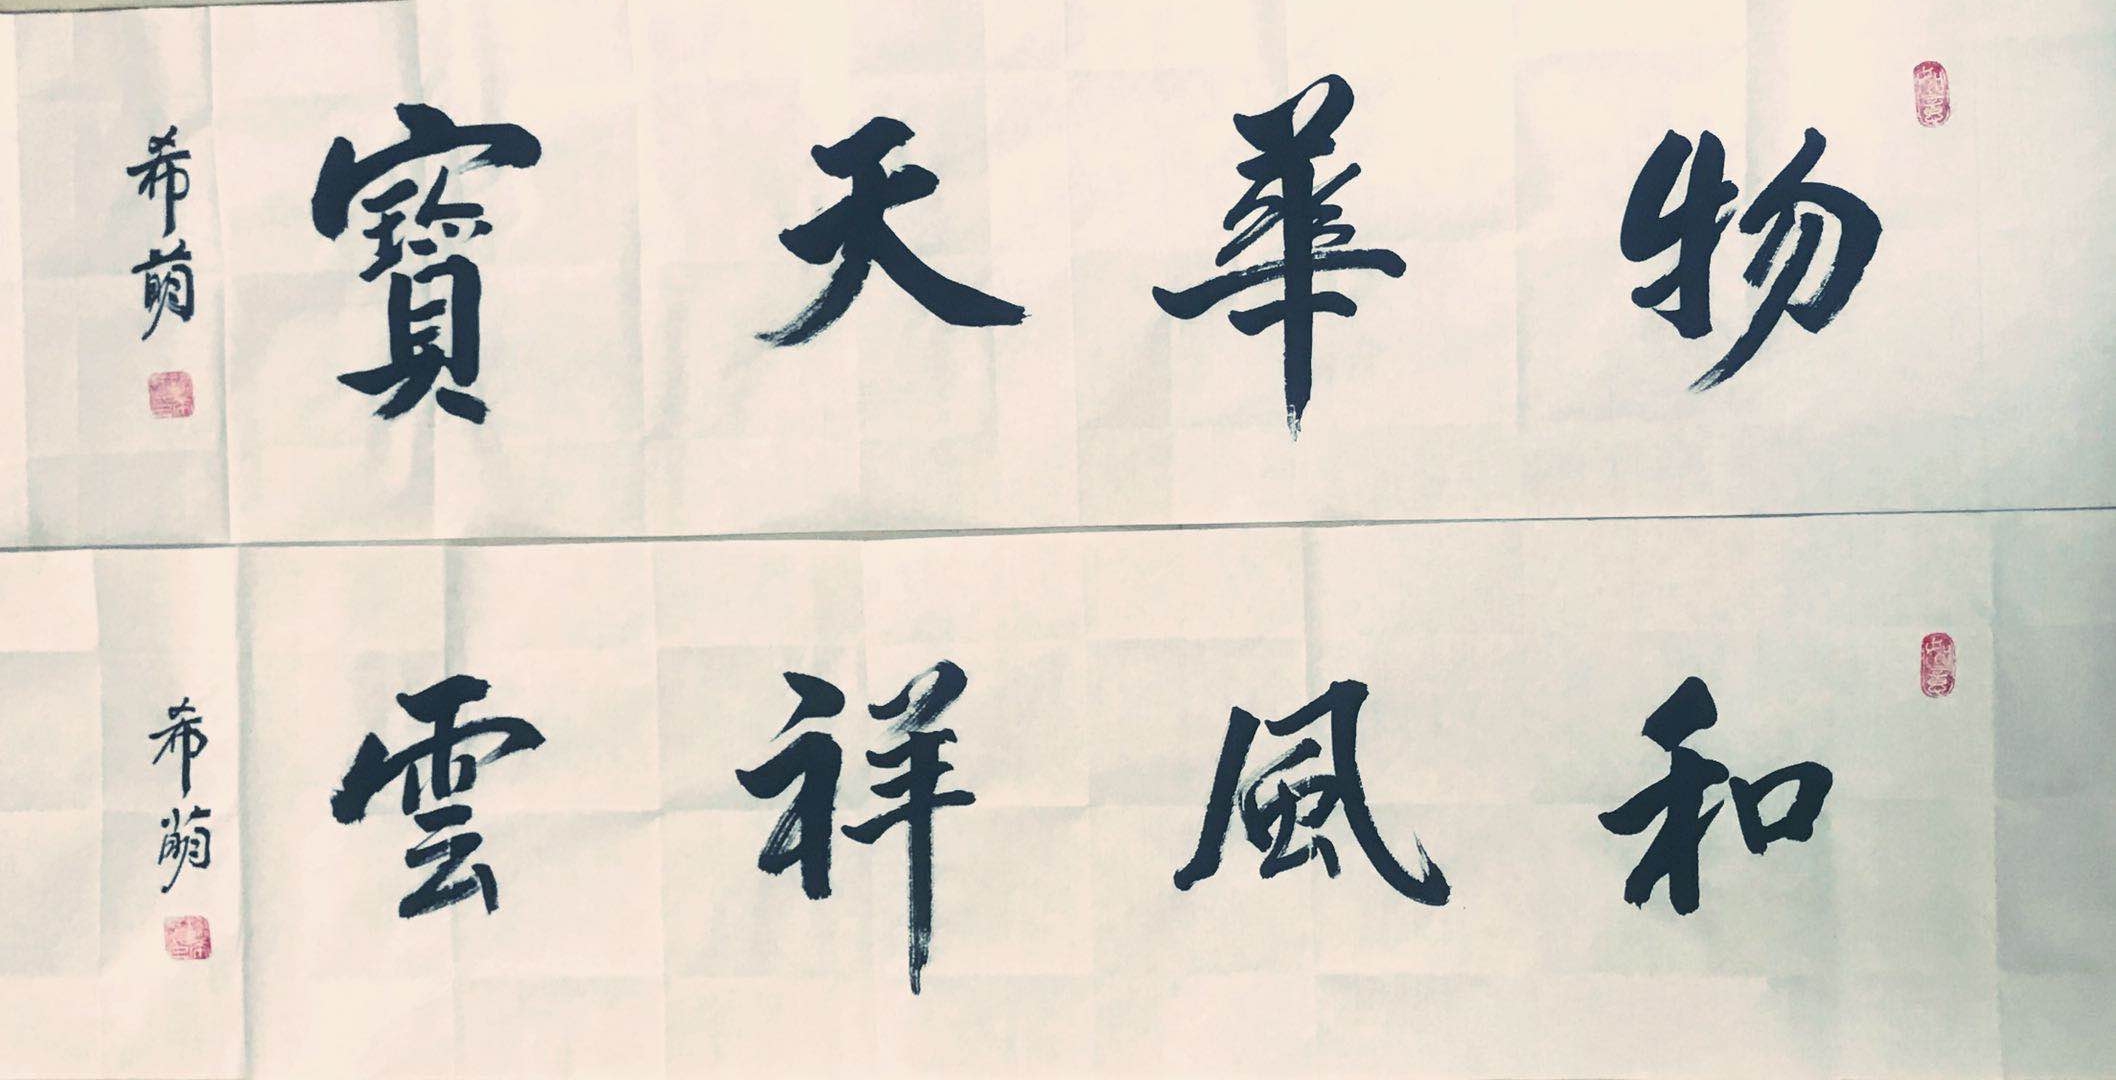 物華天寶
希萌
和風祥雲
希萌